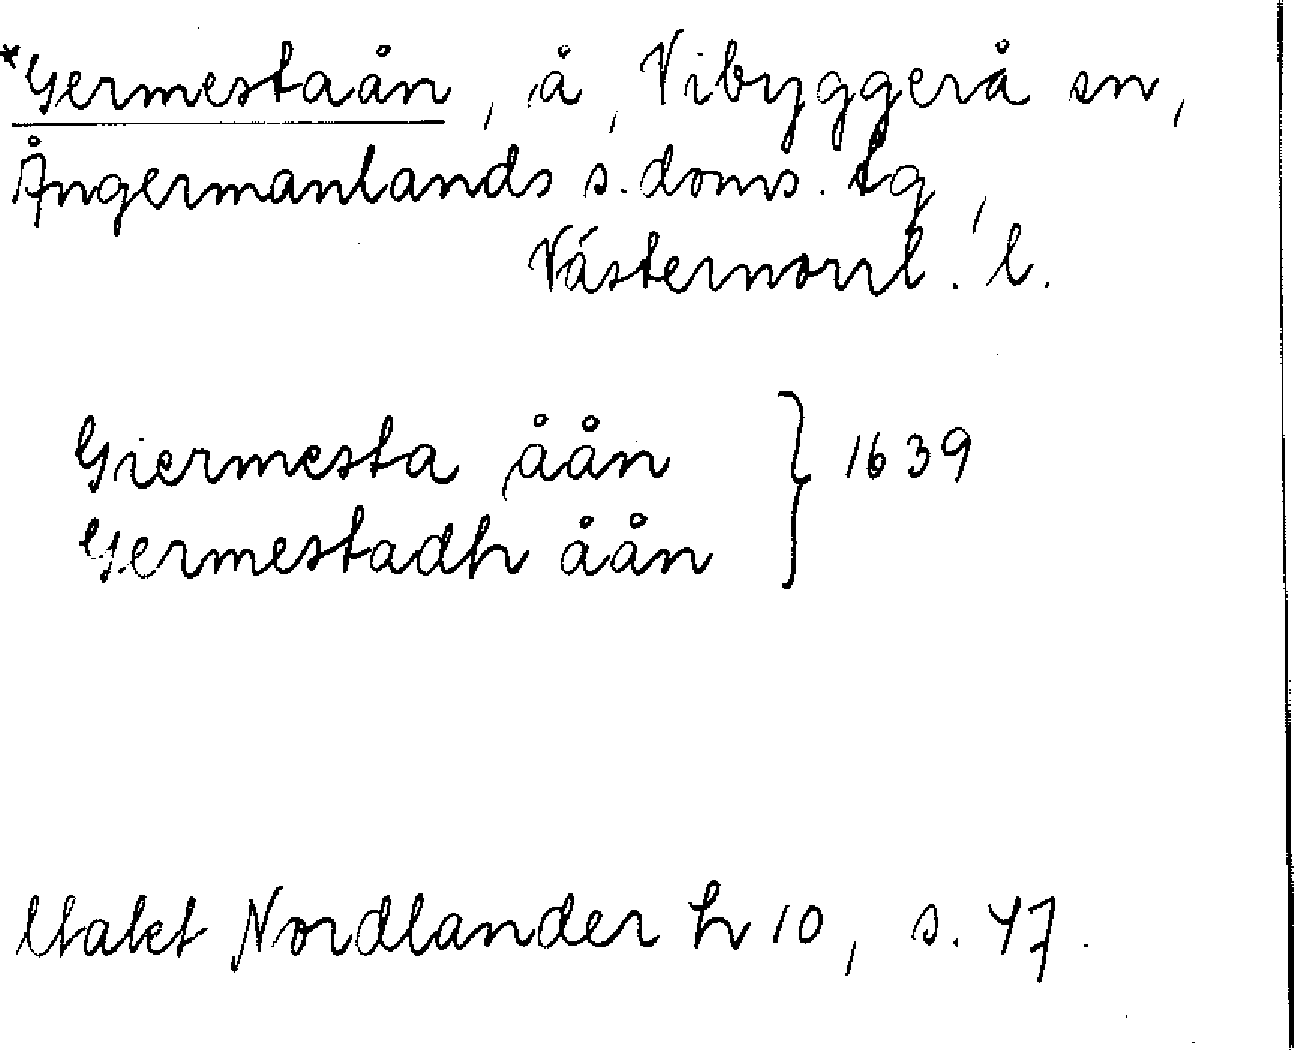 *Germestaån, å, Vibyggerå sn,
Ångermanlands s. doms. tg,
Västernorrl. l.
Giermesta åån } 1639
Germestadh åån
Utakt Nordlander h 10, s. 47.